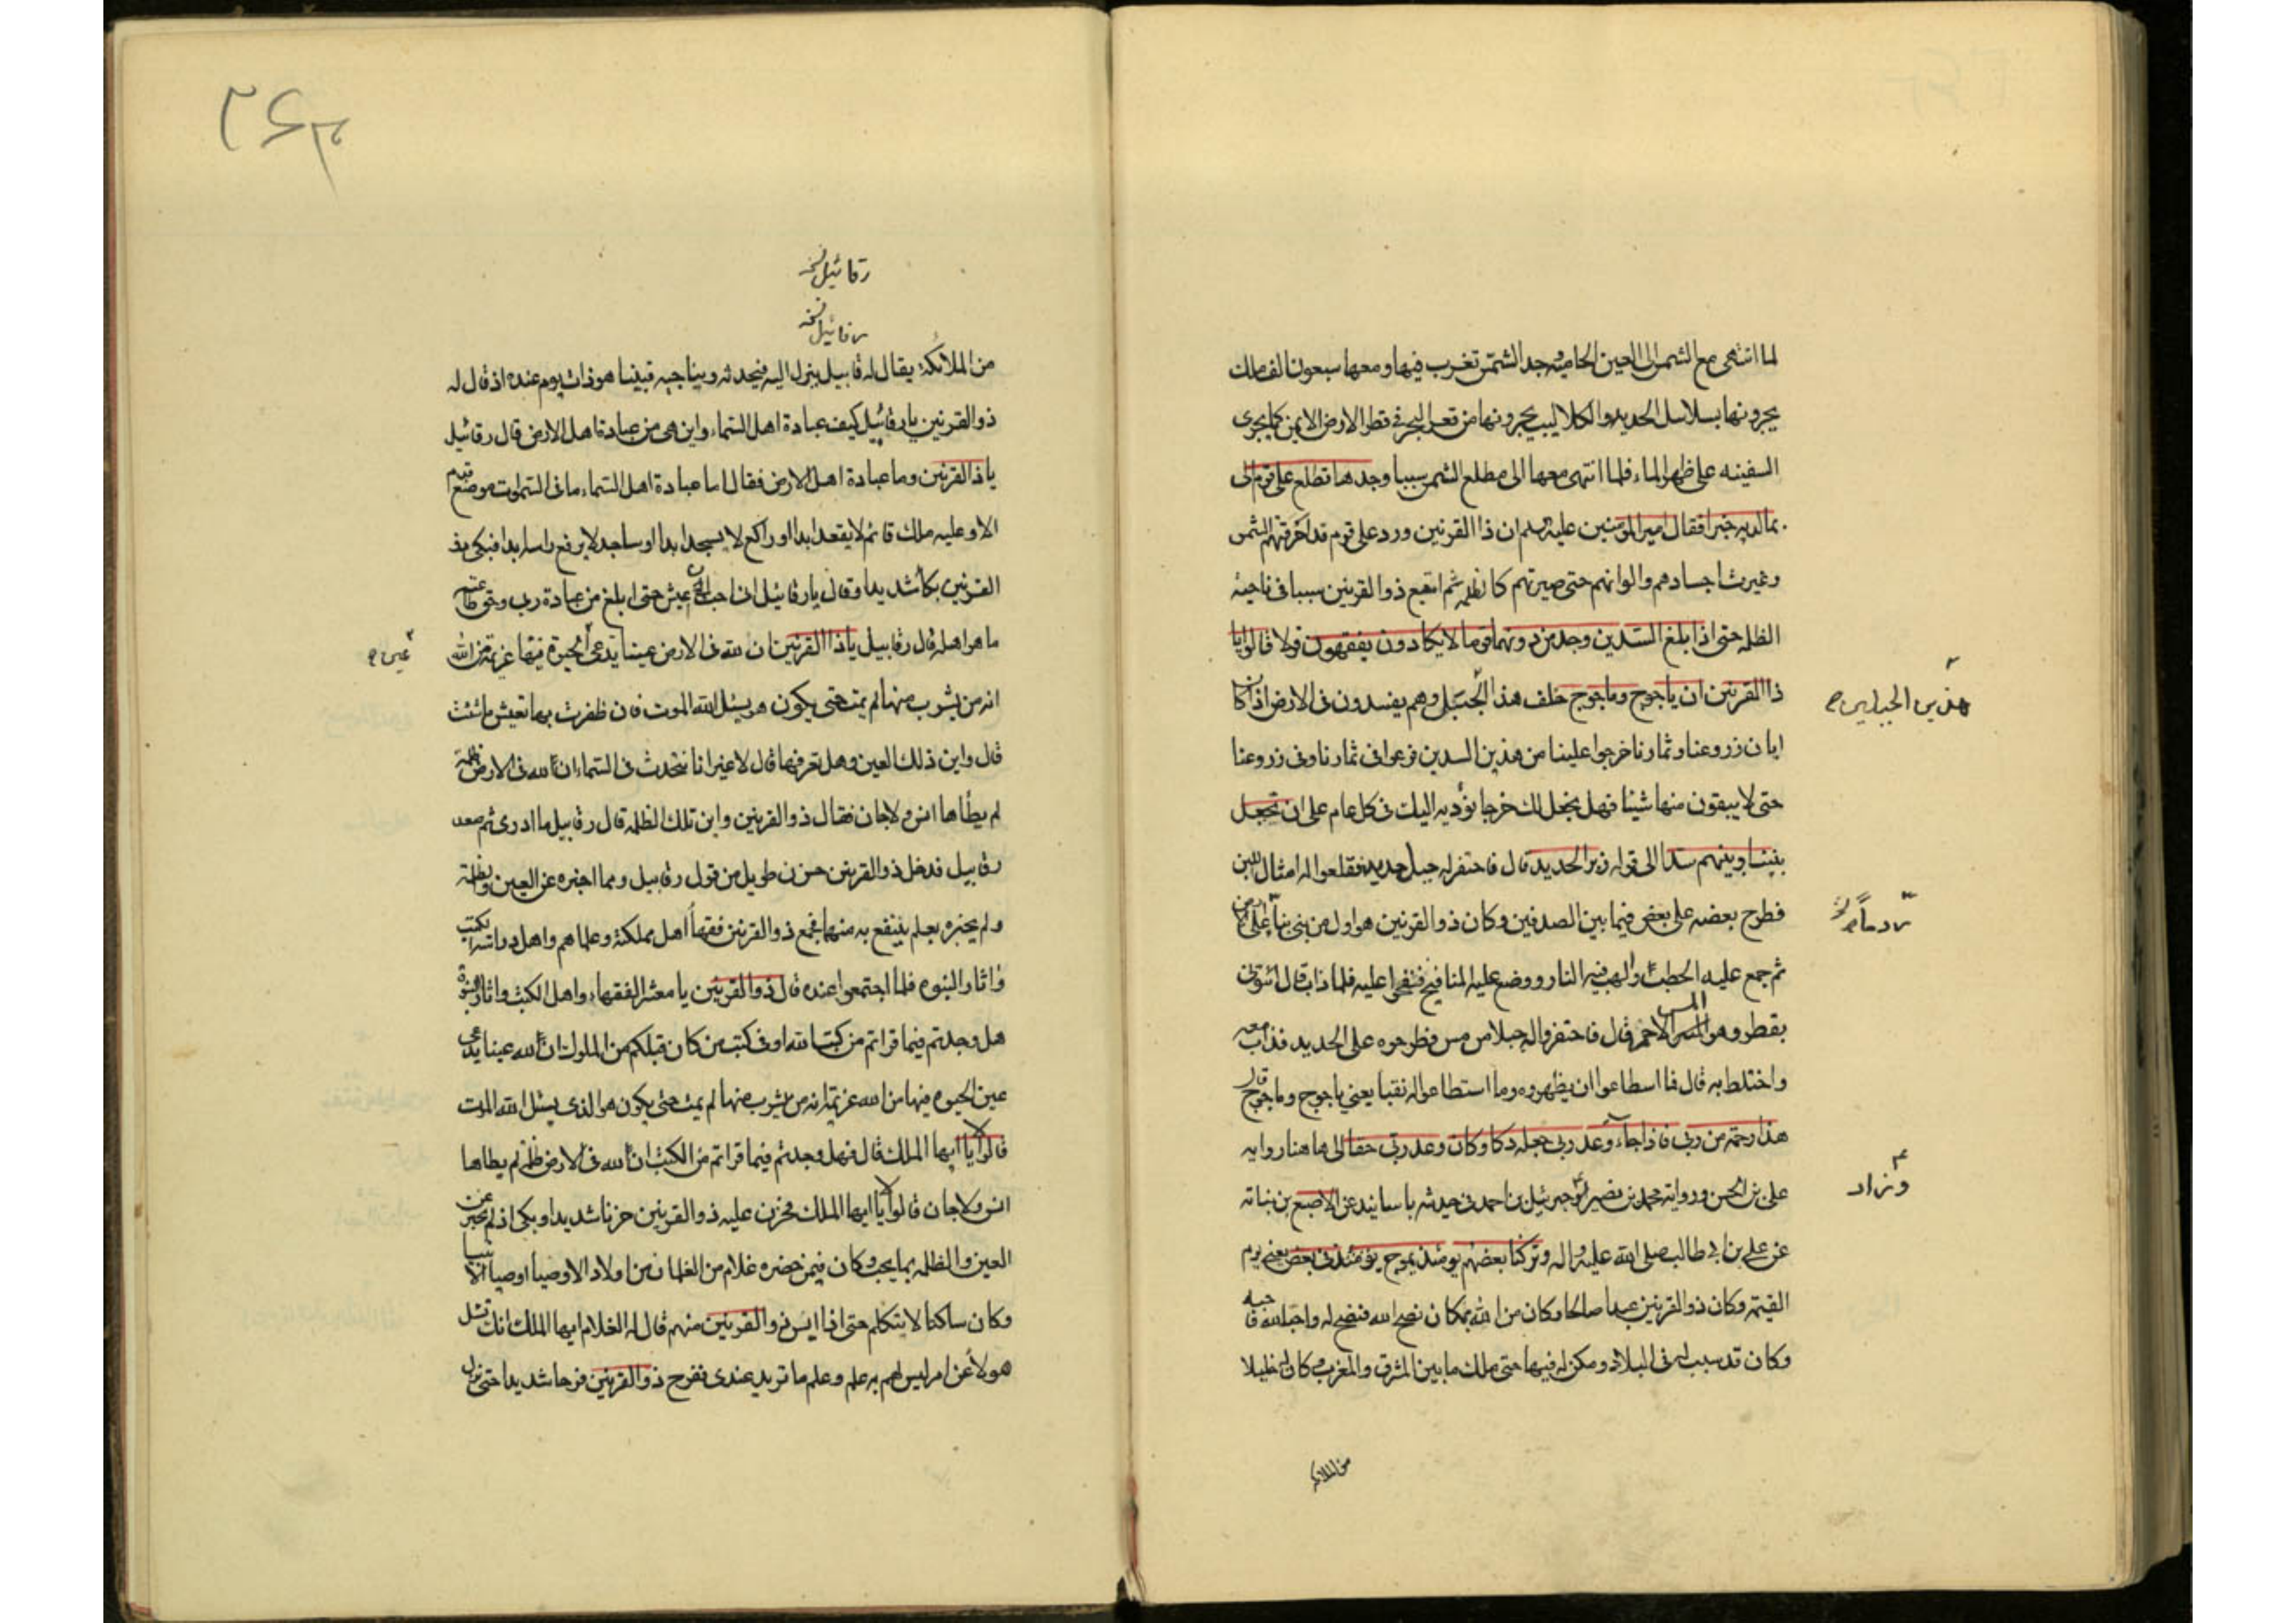 لما انتهى مع الشمس الى العين الحامية وجد الشمس تغرب فيها ومعها سبعون الف ملك
يجرونها بسلاسل الحديد والكلاليب يجرونها من قعر البحر في قطر الارض الايمن كما يجرى
السفينه على ظهر الماء فلما انتهى معها الى مطلع الشمس سببا وجدها تطلع على قوم الى
بما لديه خبرا فقال امير المومنين عليه ان ذا القرنين ورد على قوم قد احرقتهم الشمس
وغيرت اجسادهم والوانهم حتى صيرتهم كالظلمه ثم اتبع ذو القرنين سببا فى ناحية
الظلمه حتى اذا بلغ السدين وجد من دونهما قوما لا يكادون يفقهون قولا قالوا يا
ذا القرنين ان ياجوج وماجوج خلف هذا الجبل وهم يفسدون فى الارض اذا كان
هذين الجبلين
ابان زروعنا وثمارنا خرجوا علينا من هذين السدين فرعوا فى ثمارنا وفى زروعنا
حتى لا يبقون منها شيئا فهل نجعل لك خرجا نؤديه اليك فى كل عام على ان تجعل
بيننا وبينهم سدا الى قوله زبر الحديد قال فاحتفر له جبل حديد فقلعوا له امثال اللبن
فطرح بعضه على بعض فيما بين الصدفين وكان ذو القرنين هو اول من بنى على الارض
ردما
ثم جمع عليه الحطب والهب فيه النار ووضع عليه المنافيخ فنفخوا عليه فلما ذاب قال ائتونى
بقطر وهو المس الاحمر قال فاحتفروا له جبلا من مس فطرحوه على الحديد فذاب معه
واختلط به قال فما اسطاعوا ان يظهروه وما استطاعوا له نقبا يعنى ياجوج وماجوج قال
هذا رحمة من ربى فاذا جاء وعد ربى جعله دكا وكان وعد ربى حقا الى هاهنا روايه
على بن الحسن ورواية محمد بن نصير جبرئيل بن احمد فى حديثه باسانيد عن الاصبغ بن نباته
وزاد
عن على بن ابى طالب صلى الله عليه واله وتركنا بعضهم يومئذ يموج فى بعض يعنى يوم
القيمة وكان ذو القرنين عبدا صالحا وكان من الله بمكان نصح الله فنصح له واحب الله فاحبه
وكان قد سبب له فى البلاد ومكن له فيها حتى ملك ما بين المشرق والمغرب وكان له خليلا
من الملائكه
رقائيل نسخه
رفائيل نسخه
من الملائكة يقال له رقابيل ينزل اليه فيحدثه ويناجيه فبينا هو ذات يوم عنده اذ قال له
ذو القرنين يا رقائيل كيف عبادة اهل السماء واين هى من عبادة اهل الارض قال رقائيل
يا ذا القرنين وما عبادة اهل الارض فقال اما عبادة اهل السماء ما فى السموات موضع قدم
الا وعليه ملك قائم لا يقعد ابدا او راكع لا يسجد ابدا او ساجد لا يرفع راسه ابدا فبكى ذو
القرنين بكاء شديدا وقال يا رقائيل انى احب ان اعيش حتى ابلغ من عبادة ربى وحق طاعته
ما هو اهله قال رقابيل يا ذا القرنين ان لله فى الارض عينا تدعى الحيوة فيها عزيمة من الله
عين
انه من يشرب منها لم يمت حتى يكون هو يسئل الله الموت فان ظفرت بها تعيش ما شئت
قال واين ذلك العين وهل تعرفها قال لا غير انا نتحدث فى السماء ان لله فى الارض ظلمة
لم يطاها انس ولا جان فقال ذو القرنين واين تلك الظلمه قال رقابيل ما ادرى ثم صعد
رقابيل فدخل ذو القرنين حزن طويل من قول رقابيل ومما اخبره عن العين والظلمة
ولم يخبره بعلم ينتفع به منهما فجمع ذو القرنين فقهاء اهل مملكته وعلماهم واهل دراسة الكتب
واثار النبوه فلما اجتمعوا عنده قال ذو القرنين يا معشر الفقهاء واهل الكتب واثار النبوة
هل وجدتم فيما قراتم من كتب الله او فى كتب من كان قبلكم من الملوك ان لله عينا تدعى
عين الحيوه فيها من الله عزيمة انه من يشرب منها لم يمت حتى يكون هو الذى يسئل الله الموت
قالوا لا يا ايها الملك قال فهل وجدتم فيما قراتم من الكتب ان لله فى الارض ظلمة لم يطاها
انس ولا جان قالوا لا يا ايها الملك فحزن عليه ذو القرنين حزنا شديدا وبكى اذ لم يخبر عن
العين والظلمه بما يحب وكان فيمن حضره غلام من الغلمان من اولاد الاوصيا اوصيا الانبيا
وكان ساكتا لا يتكلم حتى اذا ايس ذو القرنين منهم قال له الغلام ايها الملك انك تسئل
هولاء عن امر ليس لهم به علم وعلم ما تريد عندى ففرح ذو القرنين فرحا شديدا حتى نزل